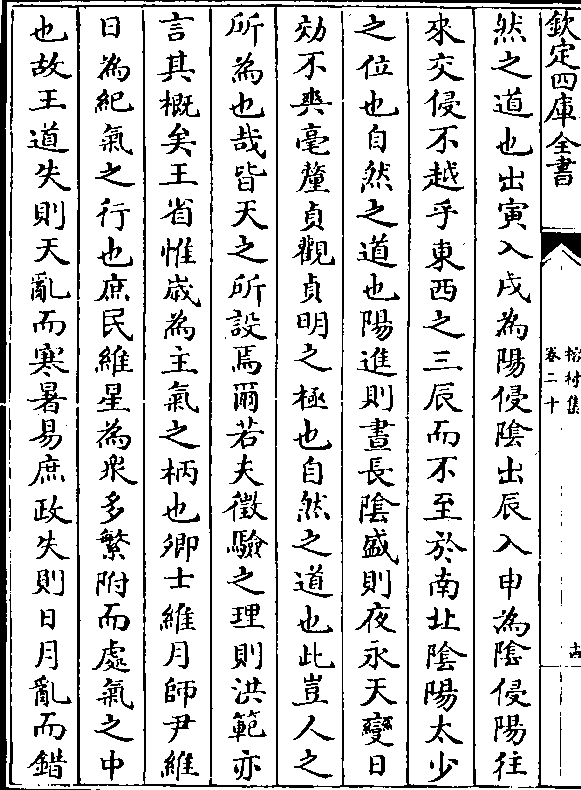 欽定四庫全書
卷二十
然之道也出寅入戌為陽侵陰出辰入申為陰侵陽往
來交侵不越乎東西之三辰而不至於南北陰陽太少
之位也自然之道也陽進則晝長陰盛則夜永天變日
効不爽毫釐貞觀貞明之極也自然之道也此豈人之
所為也哉皆天之所設焉爾若夫徵驗之理則洪範亦
言其概矣王省惟歲為主氣之柄也卿士維月師尹維
日為紀氣之行也庶民維星為衆多繁附而處氣之中
也故王道失則天亂而寒暑易庶政失則日月亂而錯